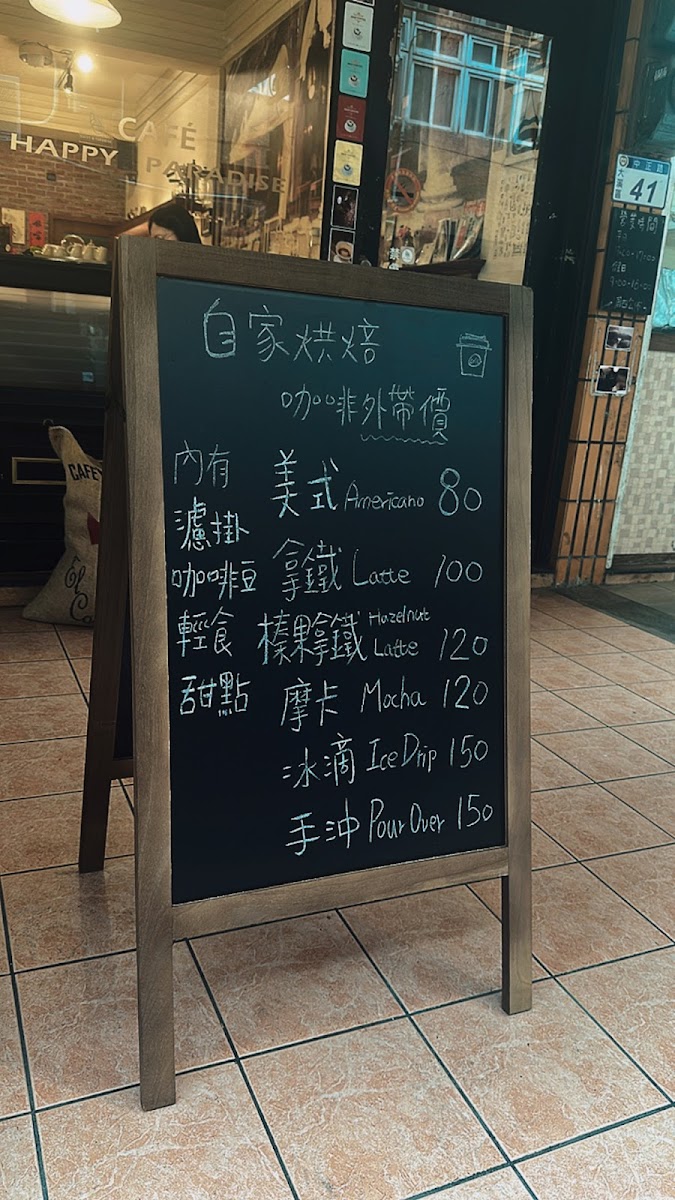 CAFÉ
HAPPY PARADISE
中正路
大溪區
41
營業時間
9:00-18:00
CAFE
自家烘焙
咖啡外帶價
內有
濾掛
咖啡豆
輕食
甜點
美式 Americano 80
拿鐵 Latte 100
榛果拿鐵 Hazelnut Latte 120
摩卡 Mocha 120
冰滴 Ice Drip 150
手沖 Pour Over 150